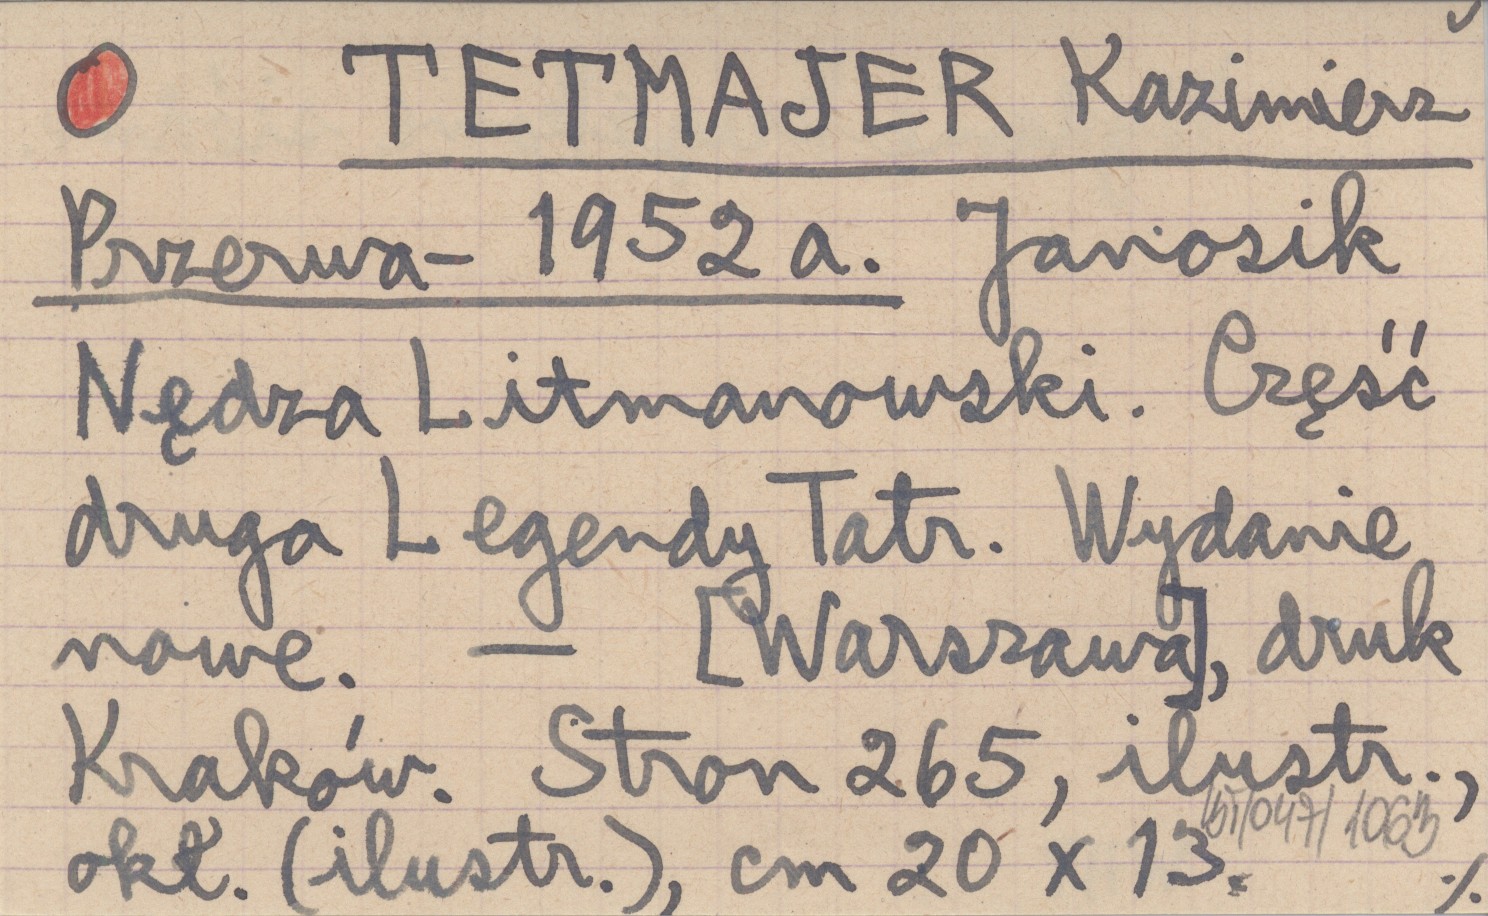 TETMAJER Kazimierz
Przerwa- 1952 a. Janosik
Nędza Litmanowski. Część
druga Legendy Tatr. Wydanie
nowe. — [Warszawa], druk
Kraków. Stron 265, ilustr.,
okł. (ilustr.), cm 20 x 13.
/047/ 1063
./.